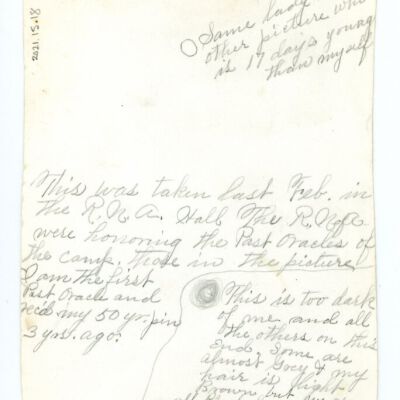 2021.15.18
Same lady
other picture who
is 17 days young
than myself
This was taken last Feb. in
the R.N.A. Hall The R.N.A
were honoring the Past Oracles of
the camp. those in the picture
I am the first
Past Oracle and
rec'd my 50 yr. pin
3 yrs. ago.
This is too dark
of me and all
the others on this
end. Some are
almost Grey & my
hair is light
brown but